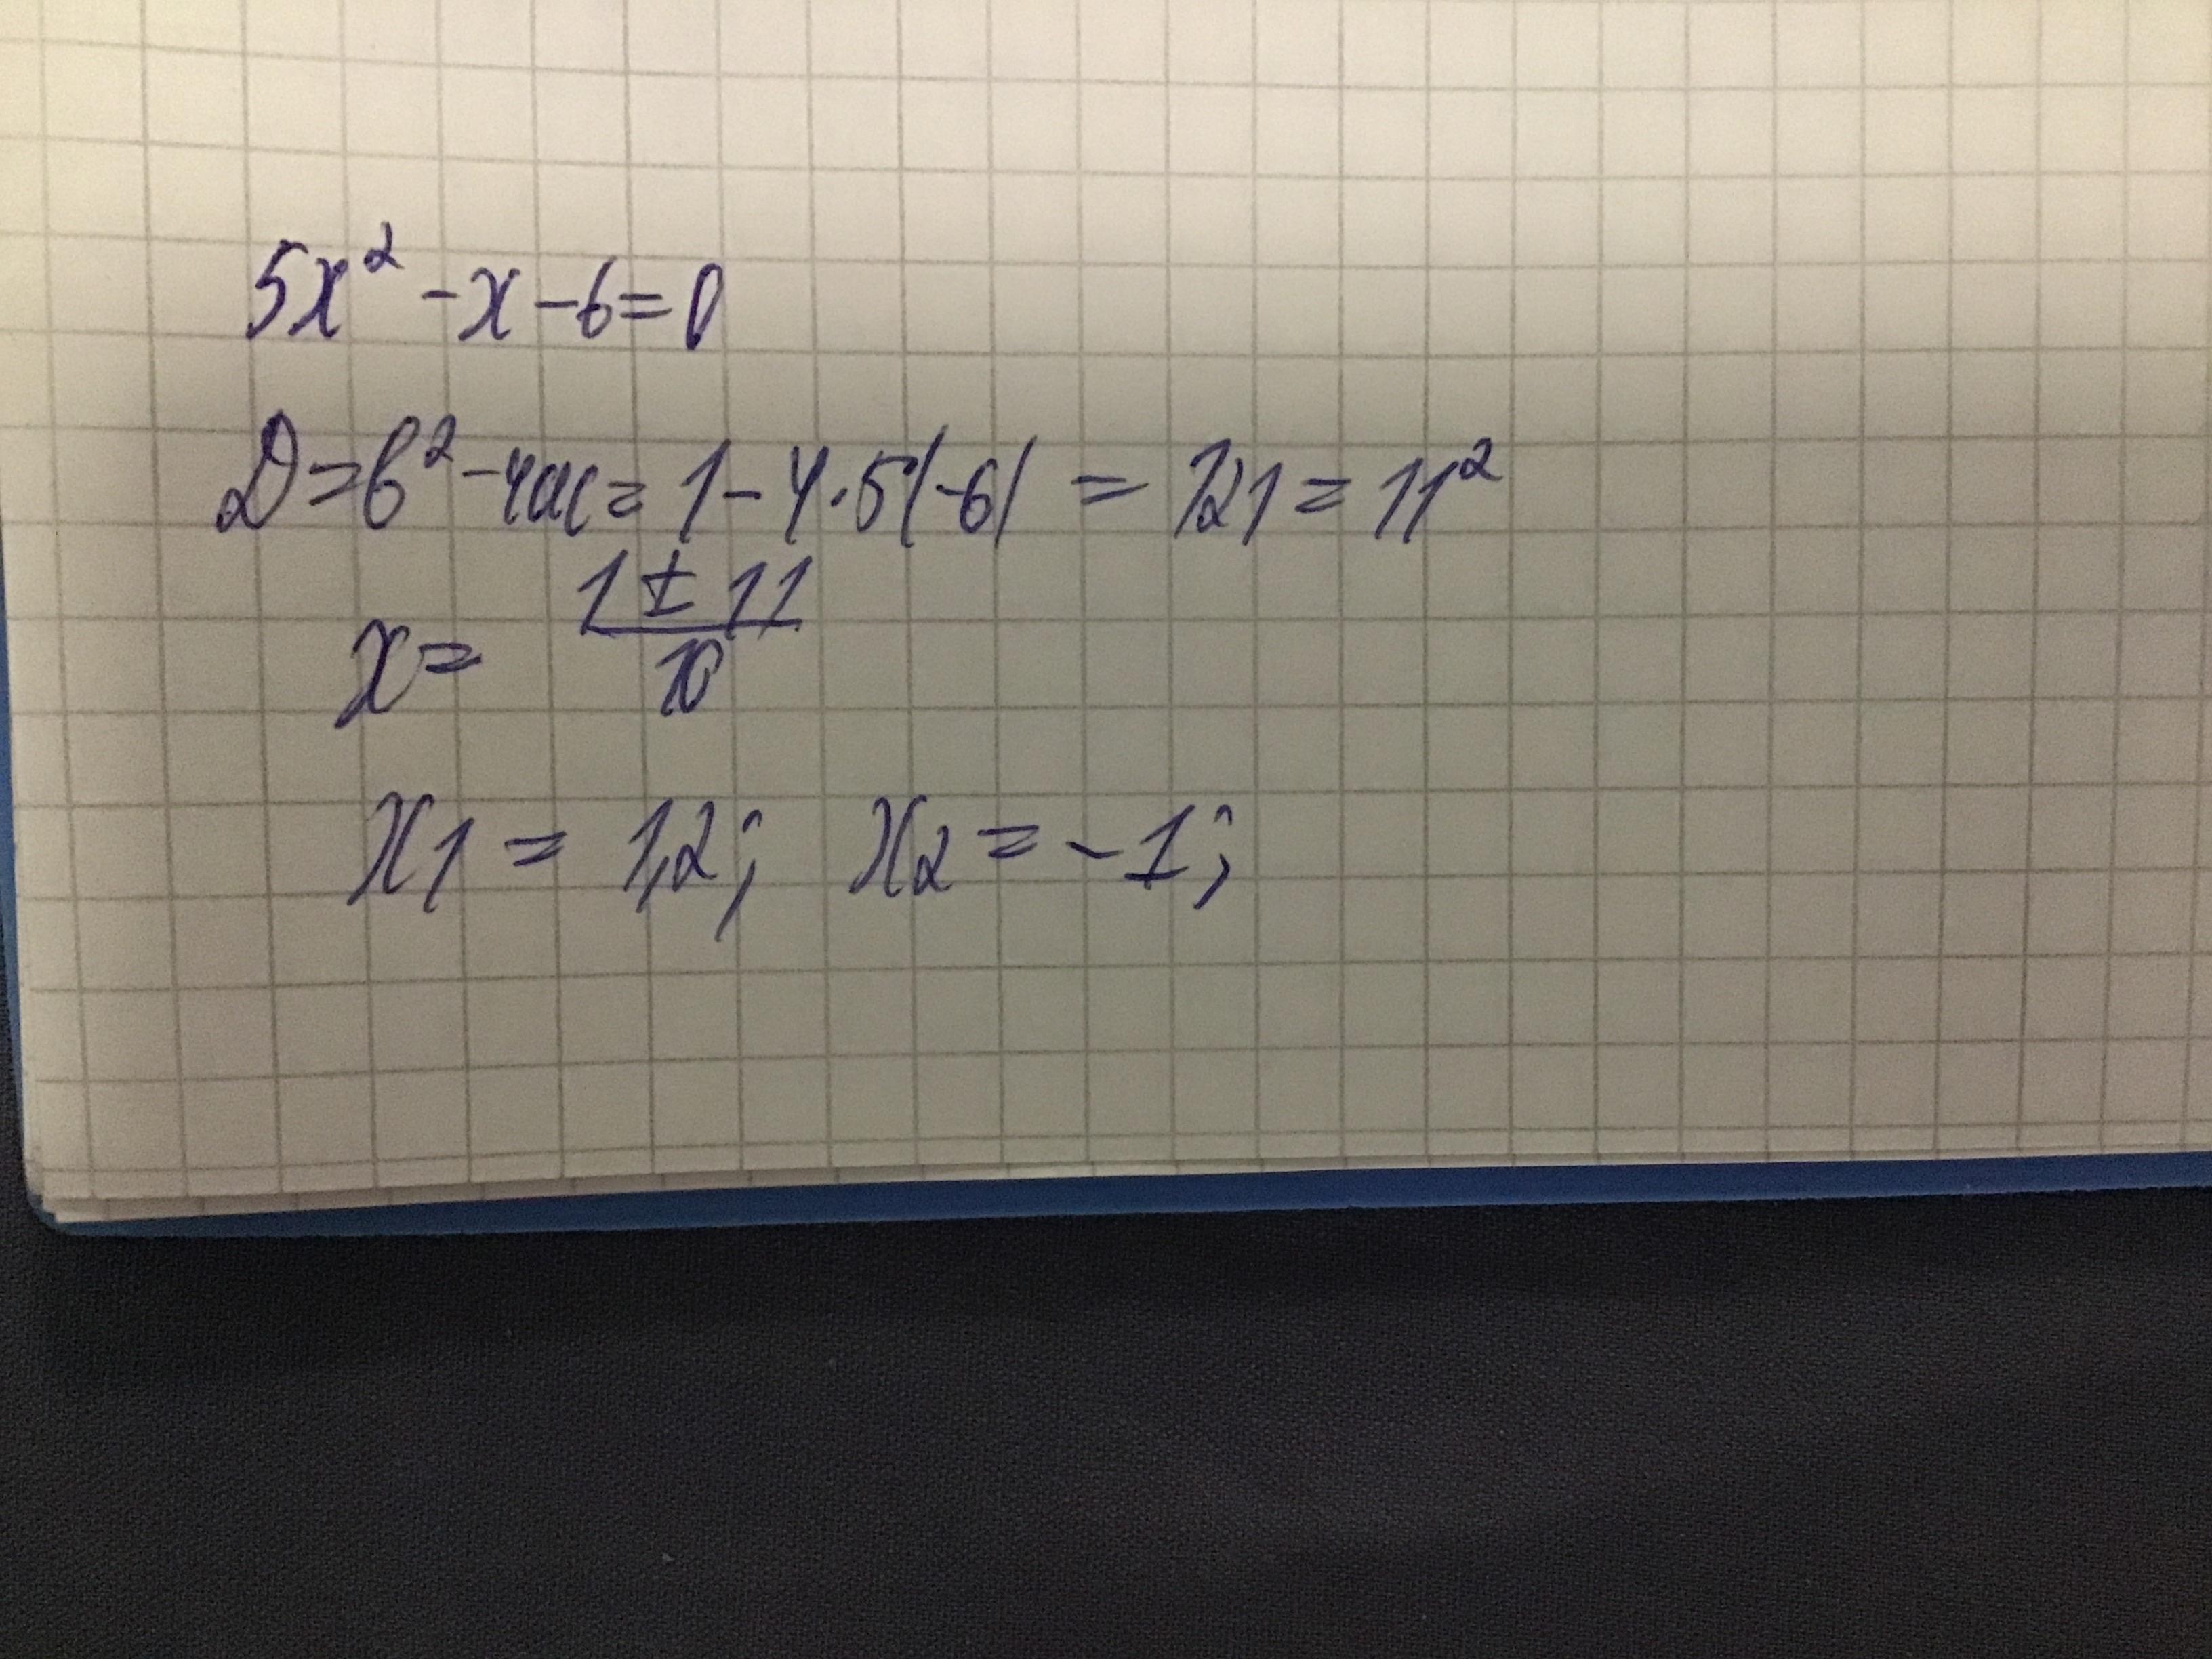 5x² - x - 6 = 0
D = b² - 4ac = 1 - 4·5(-6) = 121 = 11²
x = (1 ± 11)/10
x₁ = 1,2; x₂ = -1;